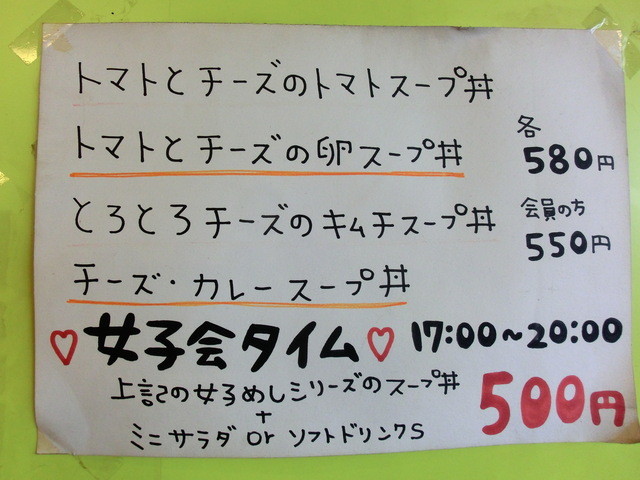 トマトとチーズのトマトスープ丼
トマトとチーズの卵スープ丼
各
580円
とろとろチーズのキムチスープ丼
会員の方
550円
チーズ・カレースープ丼
♡女子会タイム♡ 17:00~20:00
上記の女子めしシリーズのスープ丼
+
ミニサラダ or ソフトドリンクS
500円